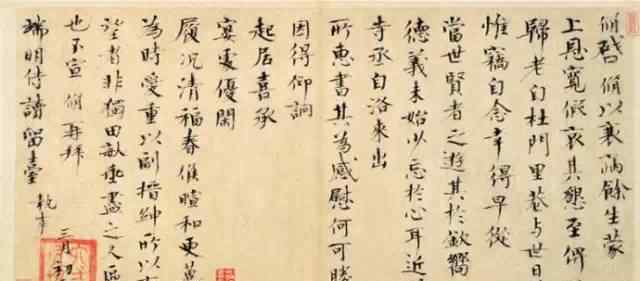 脩啓脩以衰病餘生蒙
上恩寬假哀其懇至俾
歸老自杜門里巷与世日
惟竊自念幸得早從
當世賢者之遊其於欽嚮
德義未始少忘於心耳近
寺丞自洛來出
所惠書其為感慰何可勝
因得仰詢
起居喜承
宴處優閑
履況清福春候暄和更
為時愛重以副搢紳所以有
望者非獨田畝垂盡之人區
也不宣 脩再拜
端明侍讀留臺 執事
三月初